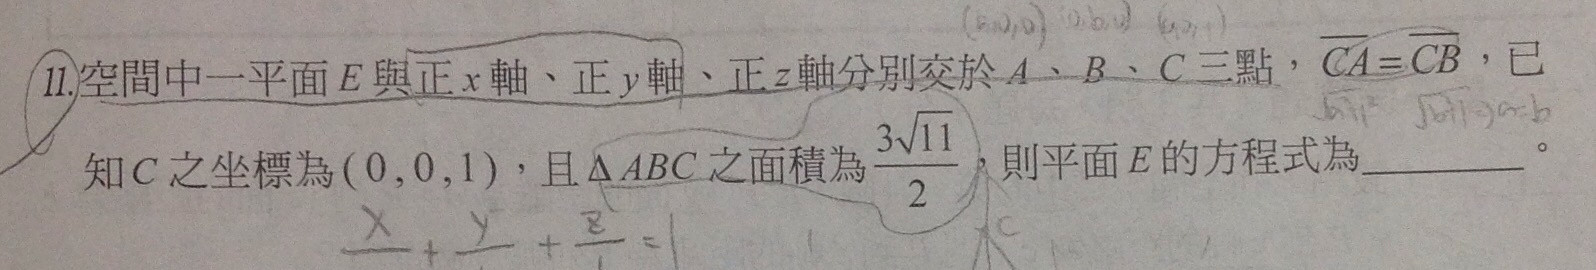 (a,0,0) (0,b,0) (0,0,1)
11.空間中一平面 E 與正 x 軸、正 y 軸、正 z 軸分別交於 A、B、C 三點，CA=CB，已
知 C 之坐標為(0,0,1)，且 Δ ABC 之面積為 3√11/2，則平面 E 的方程式為________。
x/ + y/ + z/1 =1 C